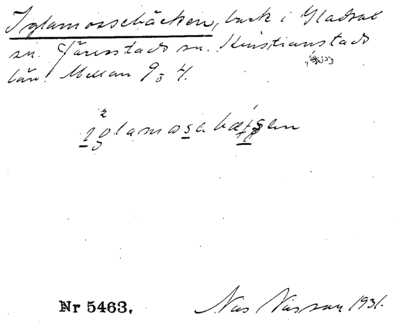 Iglamossebäcken, back i Gladsax
sn. Järrestads sn. Kristianstads
län. Mellan 9 o 4.
Nr 5463.
Nils Nilsson 1931.